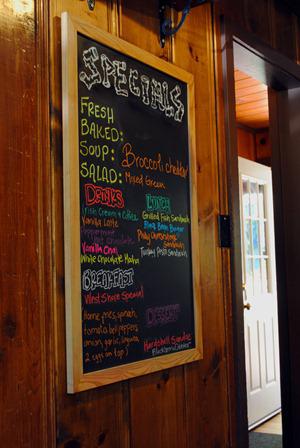 SPECIALS
FRESH
BAKED:
SOUP: Broccoli cheddar
SALAD: Mixed Green
DRINKS
Irish Cream + Coffee
Vanilla Latte
Peppermint
Hot Chocolate
Vanilla Chai
White Chocolate Mocha
LUNCH
Grilled Fish Sandwich
Black Bean Burger
Philly Cheesesteak
Sandwich
Turkey Pesto Sandwich
BREAKFAST
West Shore Special
Home fries, spinach,
tomato, bell peppers
onion, garlic, linguica,
2 eggs on top
DESSERT
Hardshell Sundae